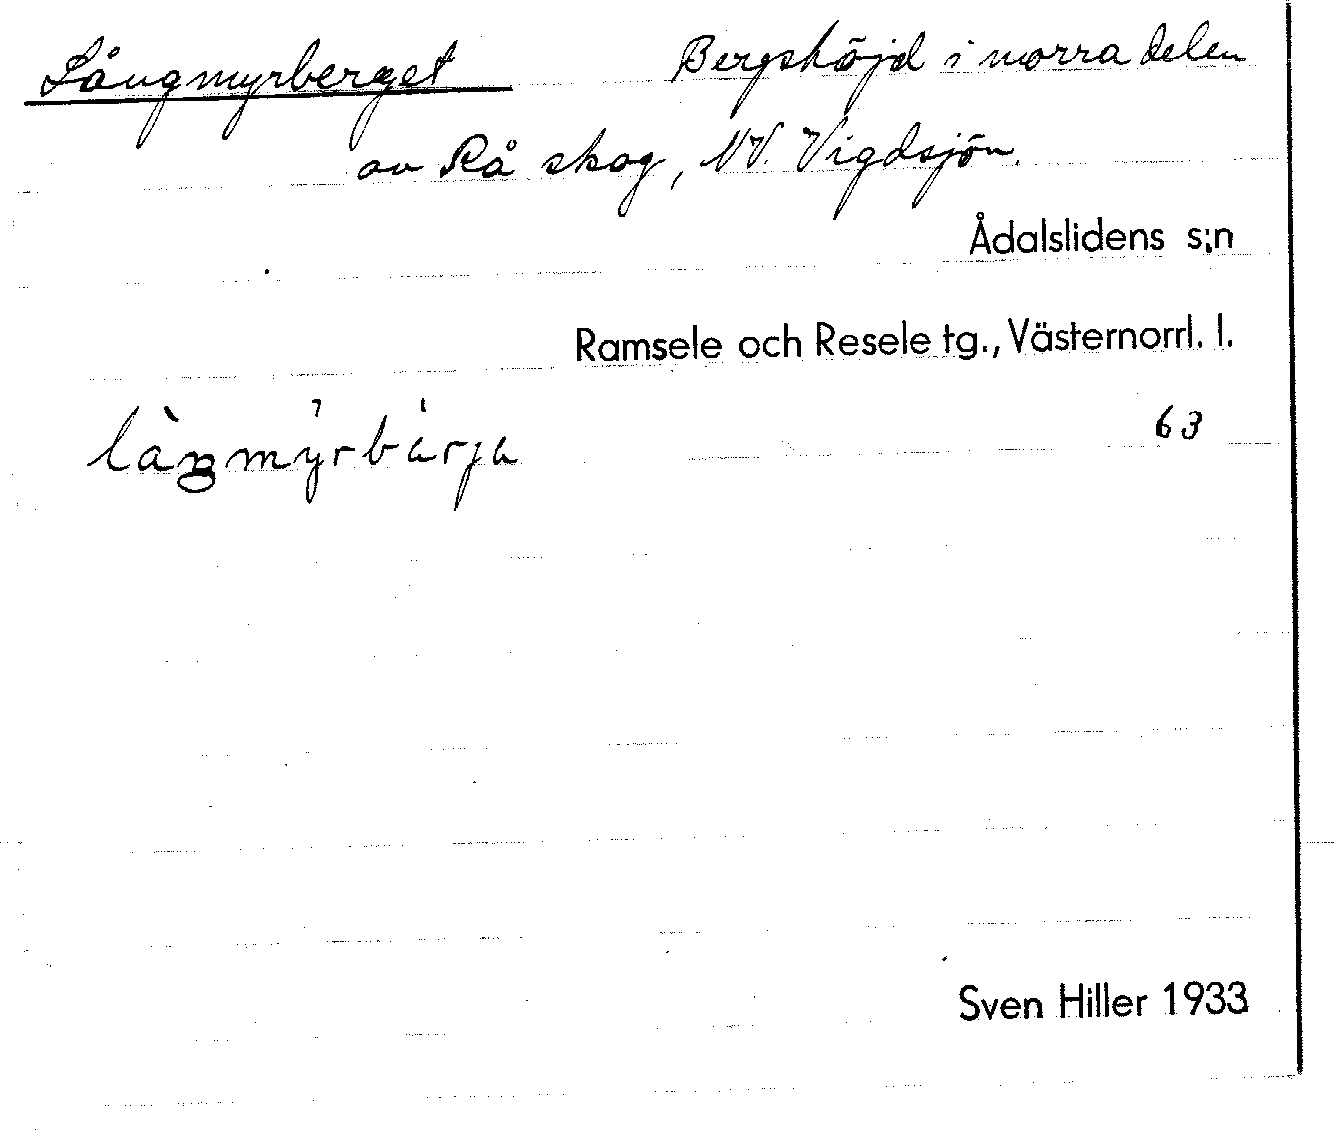 Långmyrberget Bergshöjd i norra delen
av Rå skog, NV. Vigdsjön.
Ådalslidens s:n
Ramsele och Resele tg., Västernorrl. l.
63
Sven Hiller 1933